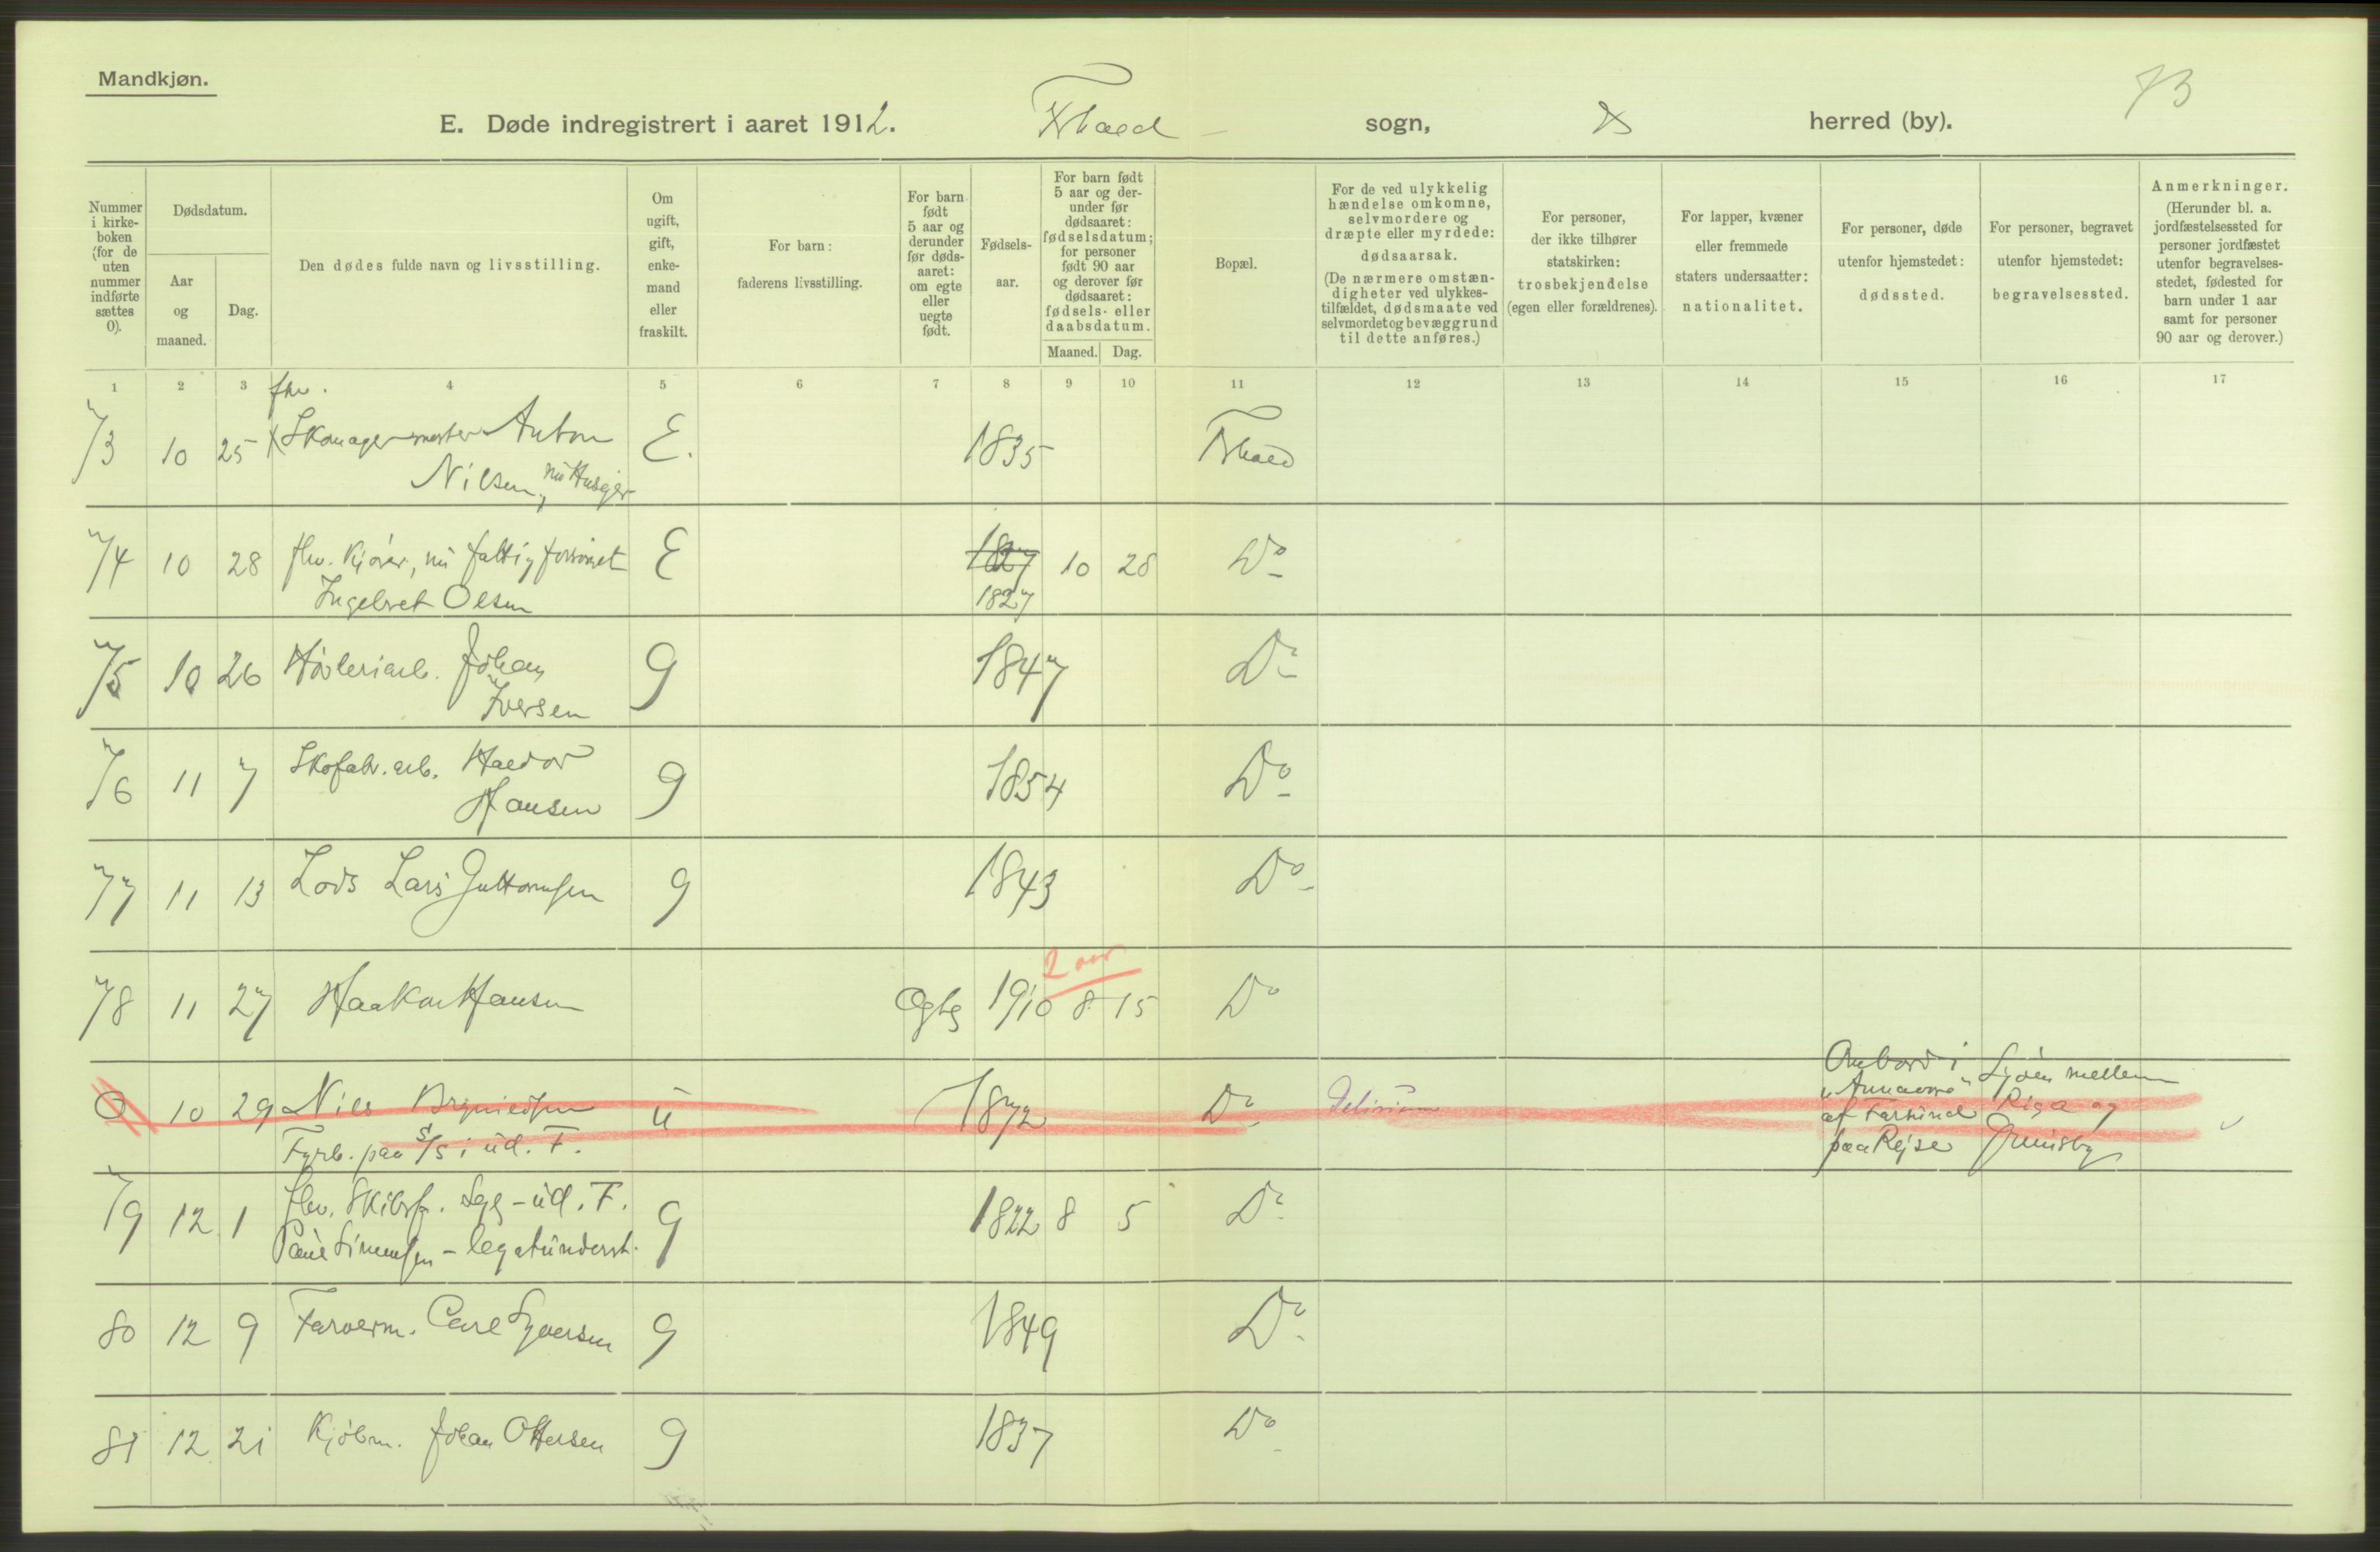 Mandkjøn.
73
E. Døde indregistrert i aaret 1912. Fhald sogn, herred (by).
Nummer i kirke-boken (for de uten nummer indførte sættes 0).
Dødsdatum.
Aar og maaned.
Dag.
Den dødes fulde navn og livsstilling.
Om ugift, gift, enke-mand eller fraskilt.
For barn: faderens livsstilling.
For barn født 5 aar og derunder før døds-aaret: om egte eller uegte født.
Fødsels-aar.
For barn født 5 aar og der-under før dødsaaret: fødselsdatum; for personer født 90 aar og derover før dødsaaret: fødsels- eller daabsdatum.
Maaned. Dag.
Bopæl.
For de ved ulykkelig hændelse omkomne, selvmordere og dræpte eller myrdede: dødsaarsak. (De nærmere omstæn-digheter ved ulykkes-tilfældet, dødsmaate ved selvmordet og bevæggrund til dette anføres.)
For personer, der ikke tilhører statskirken: trosbekjendelse (egen eller forældrenes).
For lapper, kvæner eller fremmede staters undersaatter: nationalitet.
For personer, døde utenfor hjemstedet: dødssted.
For personer, begravet utenfor hjemstedet: begravelsessted.
Anmerkninger. (Herunder bl. a. jordfæstelsessted for personer jordfæstet utenfor begravelses-stedet, fødested for barn under 1 aar samt for personer 90 aar og derover.)
1 2 3 4 5 6 7 8 9 10 11 12 13 14 15 16 17
fhv.
73 10 25 Skomagermester Anton E. 1835 Fhald
Nilsen, nu Huseier
74 10 28 fhv. Kjører, nu fattigforsørget E 1827 10 28 Do
Ingebret Olsen 1827
75 10 26 Høvleriarb. Johan g 1847 Do
Iversen
76 11 7 Skofabr. arb. Haldor g 1854 Do
Hansen
77 11 13 Lods Lars Guttormsen g 1843 Do
2 aar
78 11 27 Haakon Hansen Egte 1910 8 15 Do
0 10 29 Nils Brynildsen u 1872 Do Delirium Ombord i Sjøen mellem
Fyrb. paa S/S i ud. F. "Annaora" Riga og
af Farsund Grimsby
paa Rejse
79 12 1 fhv. Skibsf. Seil - ud. F. g 1822 8 5 Do
Paul Simensen - legatunderst.
80 12 9 Farverm. Carl Syversen g 1849 Do
81 12 21 Kjøbm. Johan Ottersen g 1837 Do